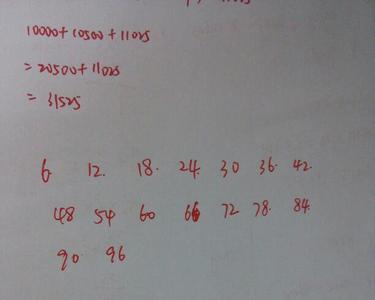 10000+10500+11025
=20500+11025
=31525
6 12. 18. 24. 30 36. 42.
48 54 60 66 72 78. 84.
90 96